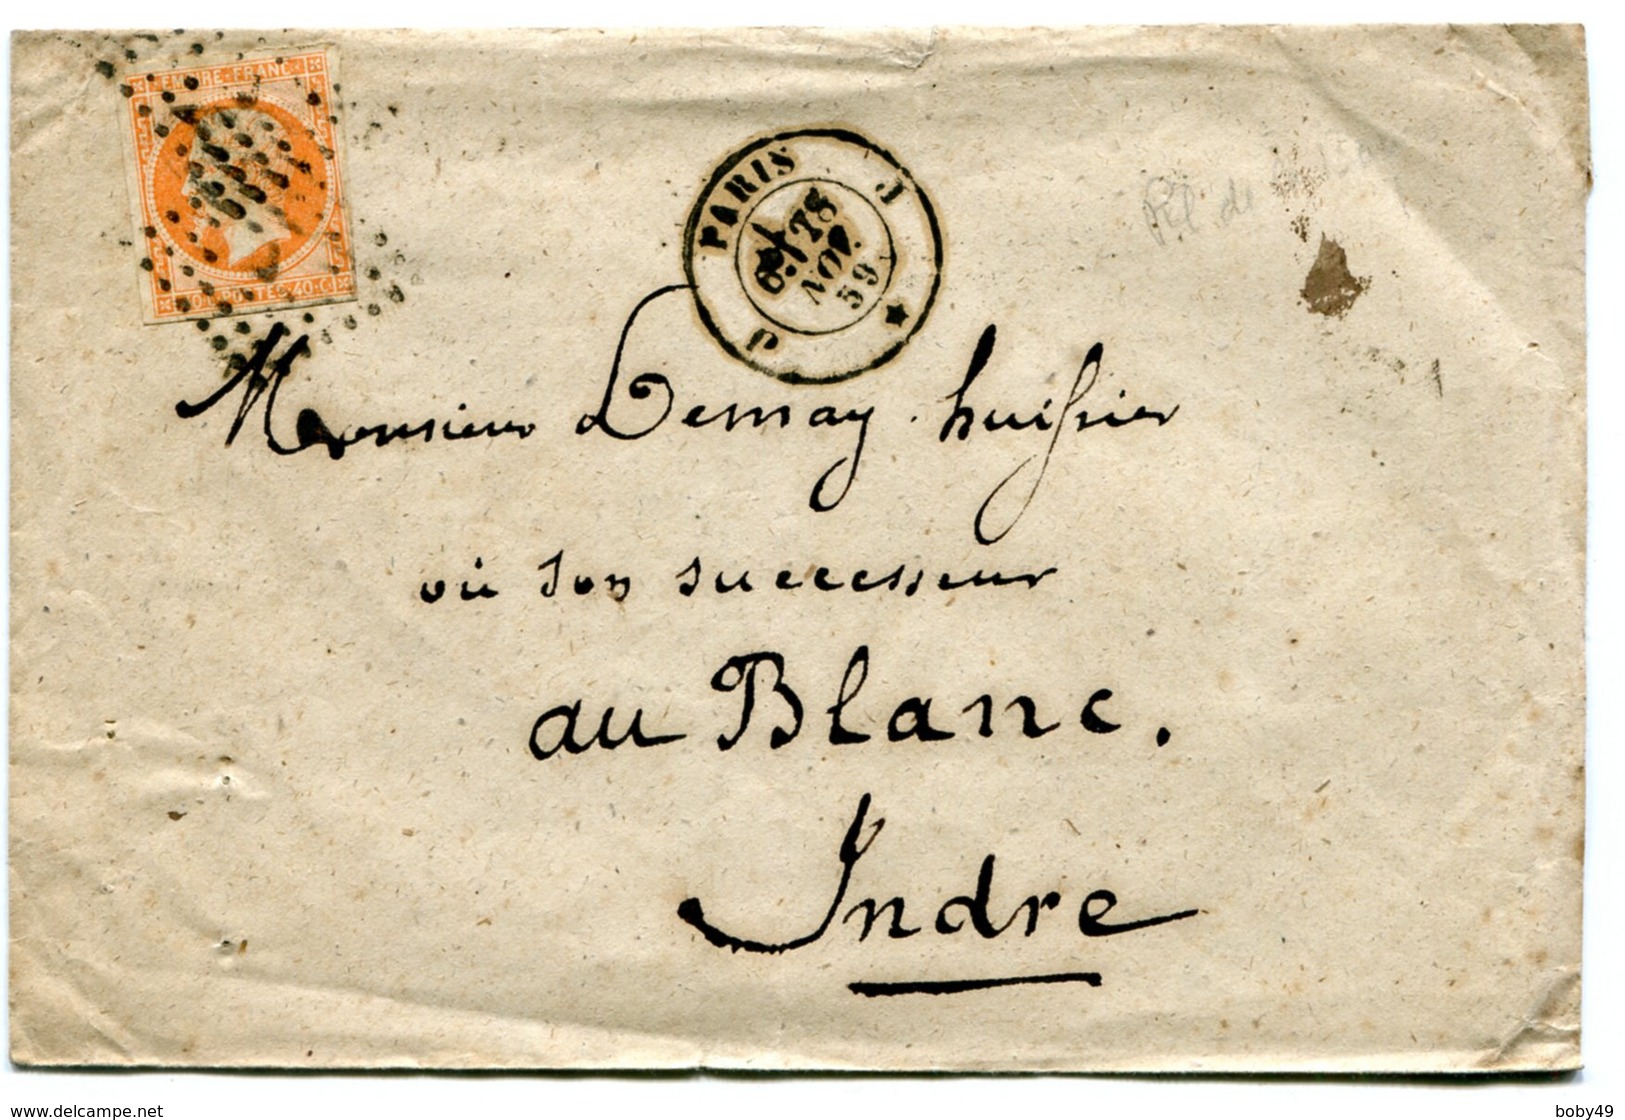 EMPIRE FRANC
POSTES 40 C
PARIS J
6E
28
NOV.
59
J
Pl de
Monsieur Lemay huissier
où son successeur
au Blanc.
Indre
delcampe.net
boby49